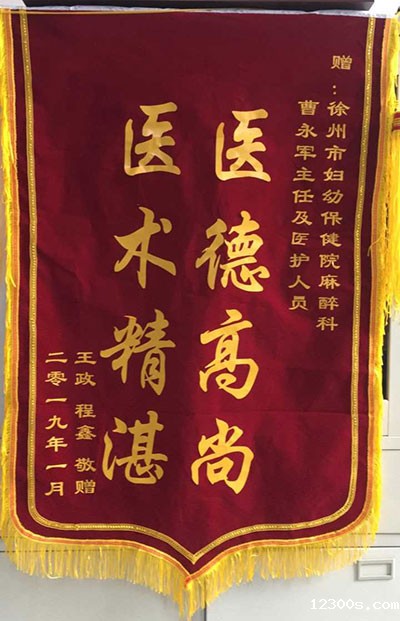 赠：徐州市妇幼保健院麻醉科
曹永军主任及医护人员
医德高尚
医术精湛
王政 程鑫 敬赠
二零一九年一月
12300s.com